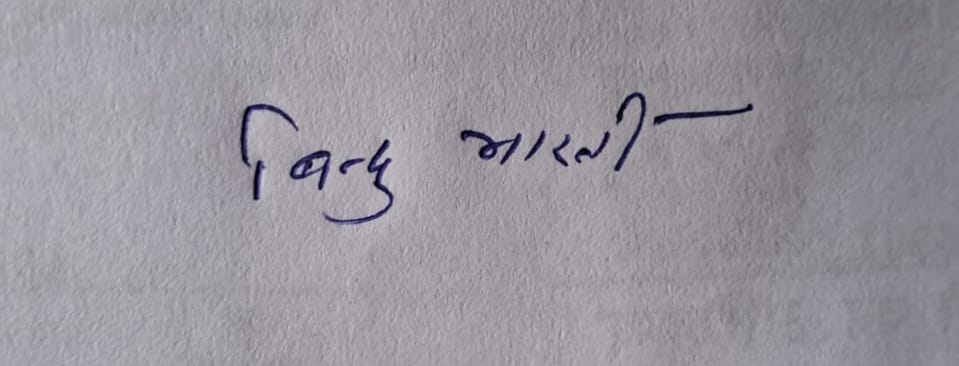 बिन्दु भारती